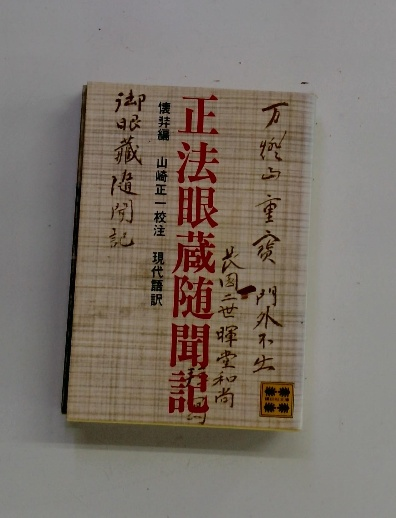 万燈山重寳 門外不出
長圓二世暉堂和尚
正法眼蔵随聞記
懐弉編 山崎正一校注 現代語訳
御眼藏隨聞記